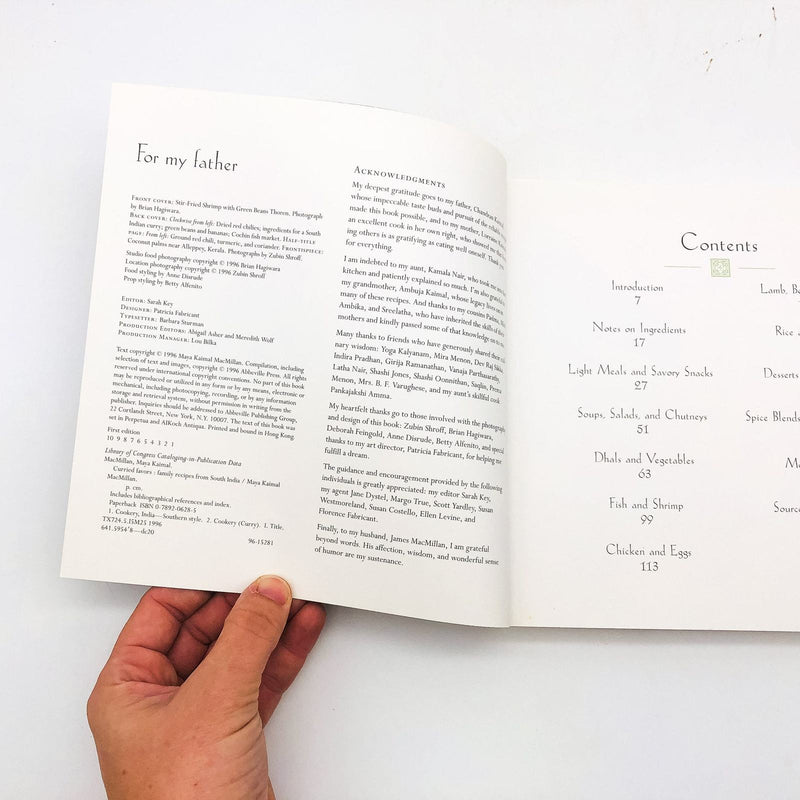 For my father
FRONT COVER: Stir-Fried Shrimp with Green Beans Thoren. Photograph
by Brian Hagiwara.
BACK COVER: Clockwise from left: Dried red chilies; ingredients for a South
Indian curry; green beans and bananas; Cochin fish market. HALF-TITLE
PAGE: From left: Ground red chili, turmeric, and coriander. FRONTISPIECE:
Coconut palms near Alleppey, Kerala. Photographs by Zubin Shroff.
Studio food photography copyright © 1996 Brian Hagiwara
Location photography copyright © 1996 Zubin Shroff
Food styling by Anne Disrude
Prop styling by Betty Alfenito
EDITOR: Sarah Key
DESIGNER: Patricia Fabricant
TYPESETTER: Barbara Sturman
PRODUCTION EDITORS: Abigail Asher and Meredith Wolf
PRODUCTION MANAGER: Lou Bilka
Text copyright © 1996 Maya Kaimal MacMillan. Compilation, including
selection of text and images, copyright © 1996 Abbeville Press. All rights
reserved under international copyright conventions. No part of this book
may be reproduced or utilized in any form or by any means, electronic or
mechanical, including photocopying, recording, or by any information
storage and retrieval system, without permission in writing from the
publisher. Inquiries should be addressed to Abbeville Publishing Group,
22 Cortlandt Street, New York, N.Y. 10007. The text of this book was
set in Perpetua and AlKoch Antiqua. Printed and bound in Hong Kong
First edition
10 9 8 7 6 5 4 3 2 1
Library of Congress Cataloging-in-Publication Data
MacMillan, Maya Kaimal.
Curried favors : family recipes from South India / Maya Kaimal
MacMillan.
p. cm.
Includes bibliographical references and index.
Paperback ISBN 0-7892-0628-5
1. Cookery, India—Southern style. 2. Cookery (Curry). I. Title.
TX724.5.I5M25 1996
641.5954'8—dc20
96-15281
ACKNOWLEDGMENTS
My deepest gratitude goes to my father, Chandran
whose impeccable taste buds and pursuit of the
made this book possible, and to my mother, Lorraine
an excellent cook in her own right, who showed me that
ing others is as gratifying as eating well oneself. Thank
for everything.
I am indebted to my aunt, Kamala Nair, who took me
kitchen and patiently explained so much. I'm also grateful
my grandmother, Ambuja Kaimal, whose legacy lives on
many of these recipes. And thanks to my cousins
Ambika, and Sreelatha, who have inherited the skills of their
mothers and kindly passed some of that knowledge on to
Many thanks to friends who have generously shared their
nary wisdom: Yoga Kalyanam, Mira Menon, Dev Raj Sikka,
Indira Pradhan, Girija Ramanathan, Vanaja Parthasarathy,
Latha Nair, Shashi Jones, Shashi Oonnithan, Saqlin,
Menon, Mrs. B. F. Varughese, and my aunt's skillful cook
Pankajakshi Amma.
My heartfelt thanks go to those involved with the photography
and design of this book: Zubin Shroff, Brian Hagiwara,
Deborah Feingold, Anne Disrude, Betty Alfenito, and special
thanks to my art director, Patricia Fabricant, for helping me
fulfill a dream.
The guidance and encouragement provided by the following
individuals is greatly appreciated: my editor Sarah Key,
my agent Jane Dystel, Margo True, Scott Yardley, Susan
Westmoreland, Susan Costello, Ellen Levine, and
Florence Fabricant.
Finally, to my husband, James MacMillan, I am grateful
beyond words. His affection, wisdom, and wonderful sense
of humor are my sustenance.
Contents
Introduction
7
Notes on Ingredients
17
Light Meals and Savory Snacks
27
Soups, Salads, and Chutneys
51
Dhals and Vegetables
63
Fish and Shrimp
99
Chicken and Eggs
113
Lamb,
Rice
Desserts
Spice